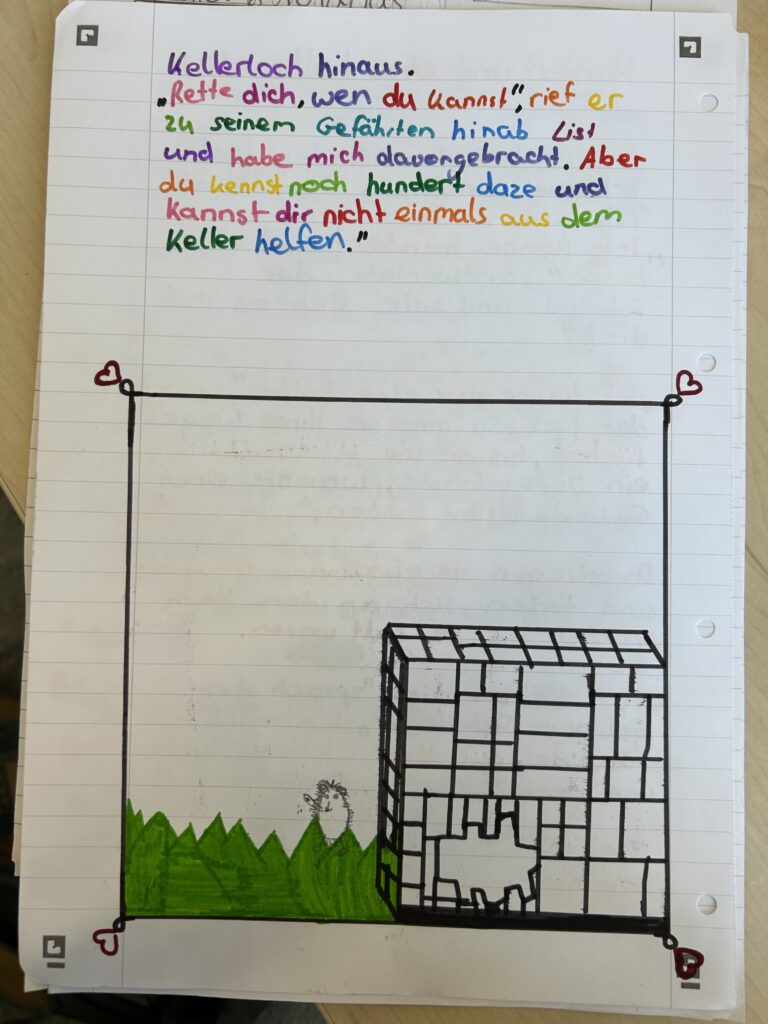 Kellerloch hinaus.
„Rette dich, wen du kannst“, rief er
zu seinem Gefährten hinab List
und habe mich davongebracht. Aber
du kennst noch hundert daze und
kannst dir nicht einmals aus dem
Keller helfen.“